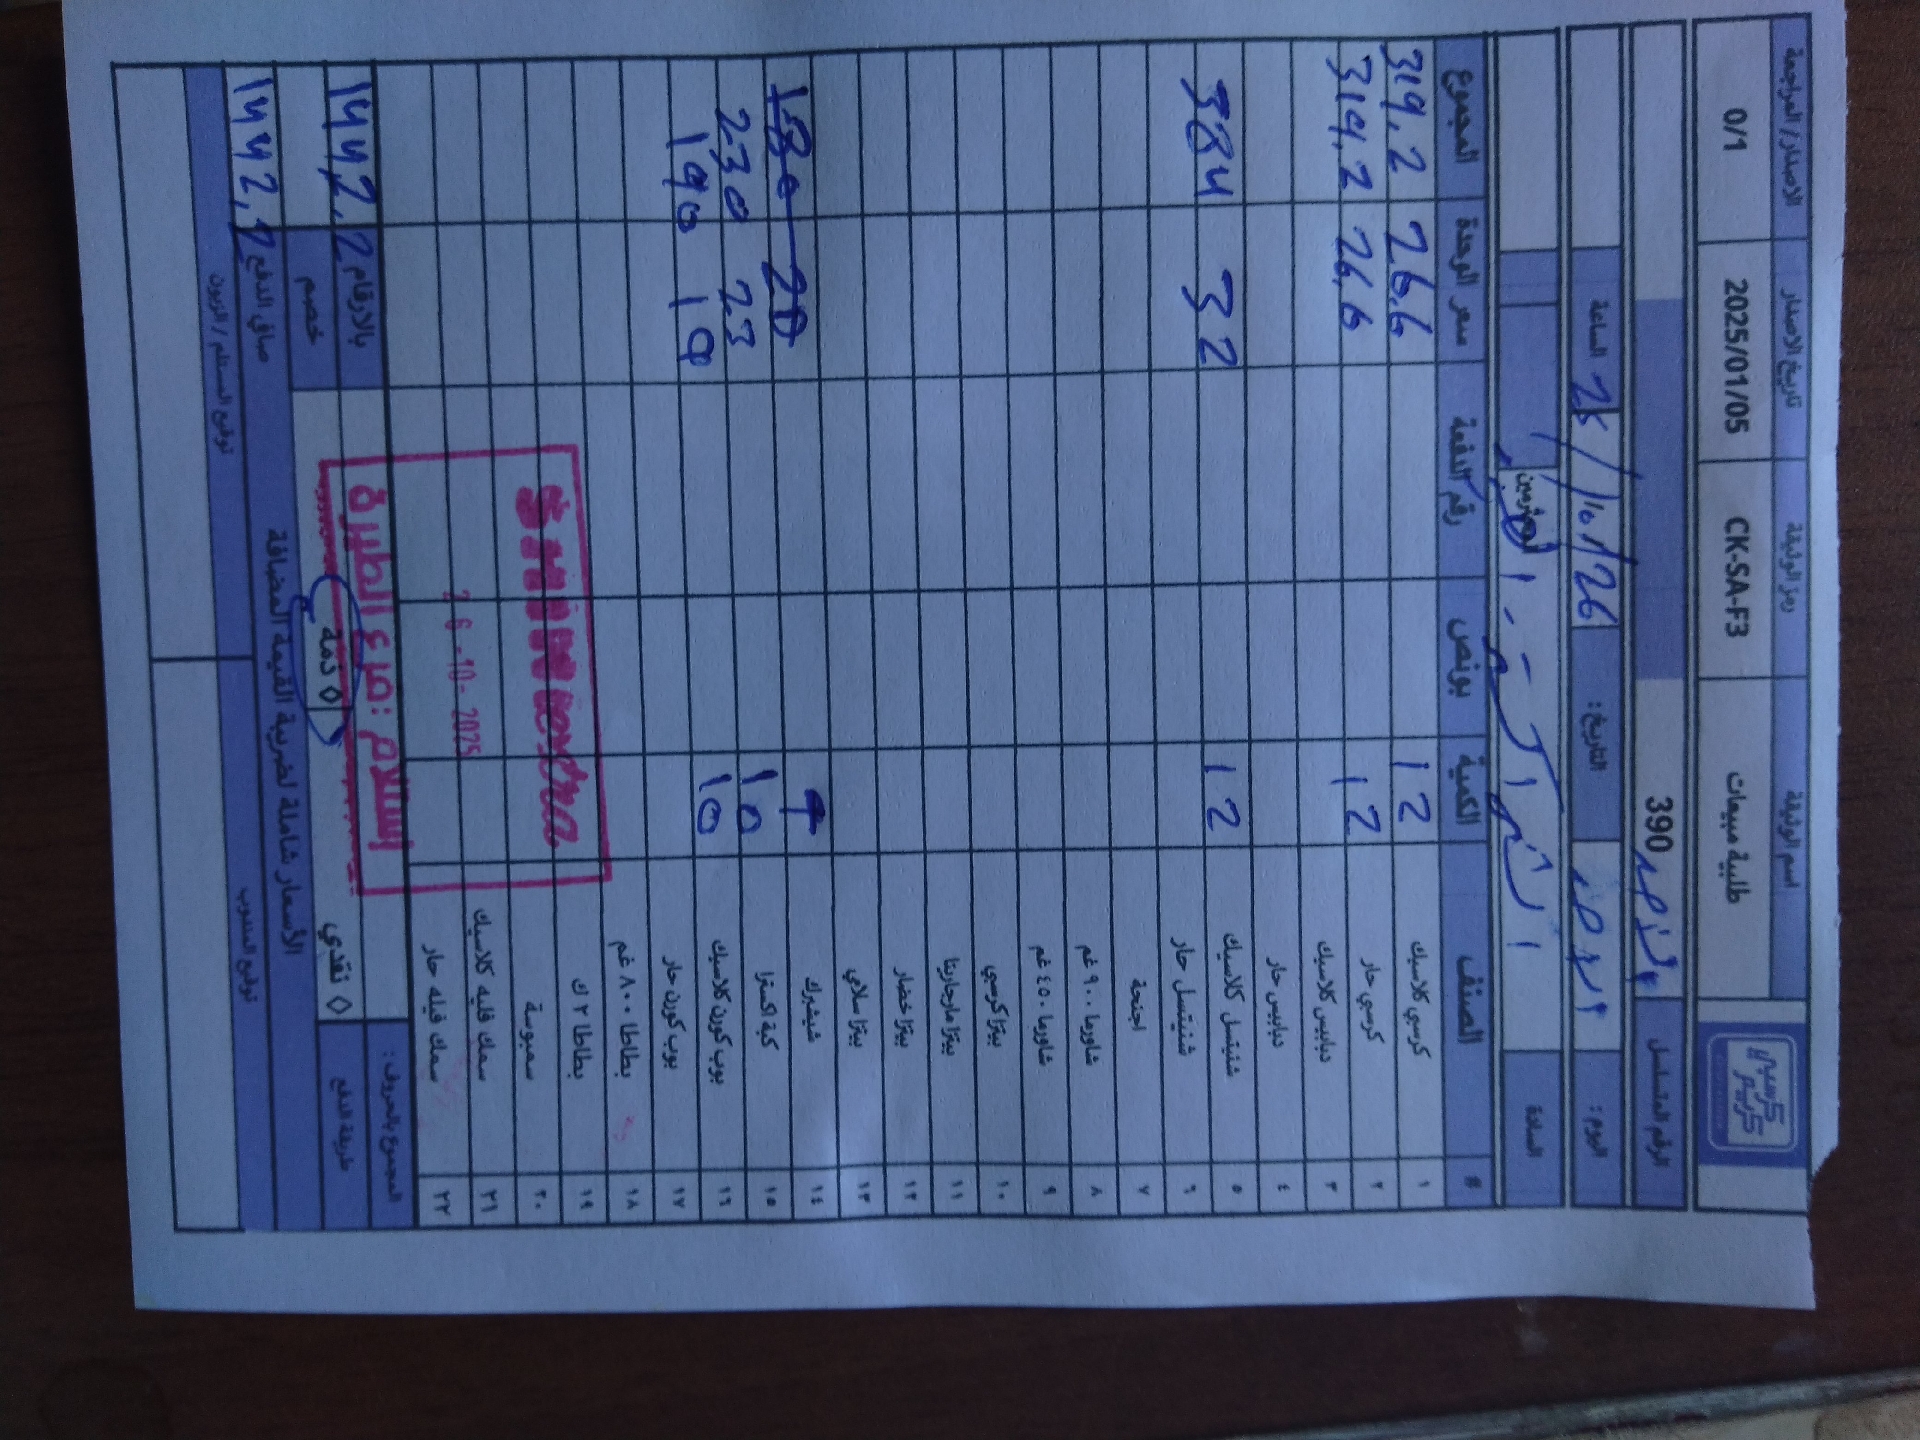 اسم الوثيقة رمز الوثيقة تاريخ الاصدار الاصدار/ المراجعة
كرسبي كريتر
طلبية مبيعات CK-SA-F3 2025/01/05 0/1
الرقم المتسلسل 390
اليوم: التاريخ: 26/10/25 الساعة
السادة المحترمين
# الصنف الكمية بونص رقم الدفعة سعر الوحدة المجموع
١ كرسبي كلاسيك 12 26,6 319,2
٢ كرسبي حار 12 26,6 319,2
٣ دبابيس كلاسيك
٤ دبابيس حار
٥ شنيتسل كلاسيك 12 32 384
٦ شنيتسل حار
٧ اجنحة
٨ شاورما ٩٠٠ غم
٩ شاورما ٤٥٠ غم
١٠ بيتزا كرسبي
١١ بيتزا مارجاريتا
١٢ بيتزا خضار
١٣ بيتزا سلامي
١٤ شيشبرك
١٥ كبة اكسترا 10 23 230
١٦ بوب كورن كلاسيك 10 19 190
١٧ بوب كورن حار
١٨ بطاطا ٨٠٠ غم
١٩ بطاطا ٢ ك
٢٠ سمبوسة
٢١ سمك فليه كلاسيك
٢٢ سمك فيله حار
26-10-2025
إستلام : فرع الطيرة
المجموع بالحروف: بالارقام 1442,2
طريقة الدفع ◊ نقدي ◊ ذمة خصم
الأسعار شاملة لضريبة القيمة المضافة صافي الدفع 1442,2
توقيع المندوب توقيع المستلم / الزبون